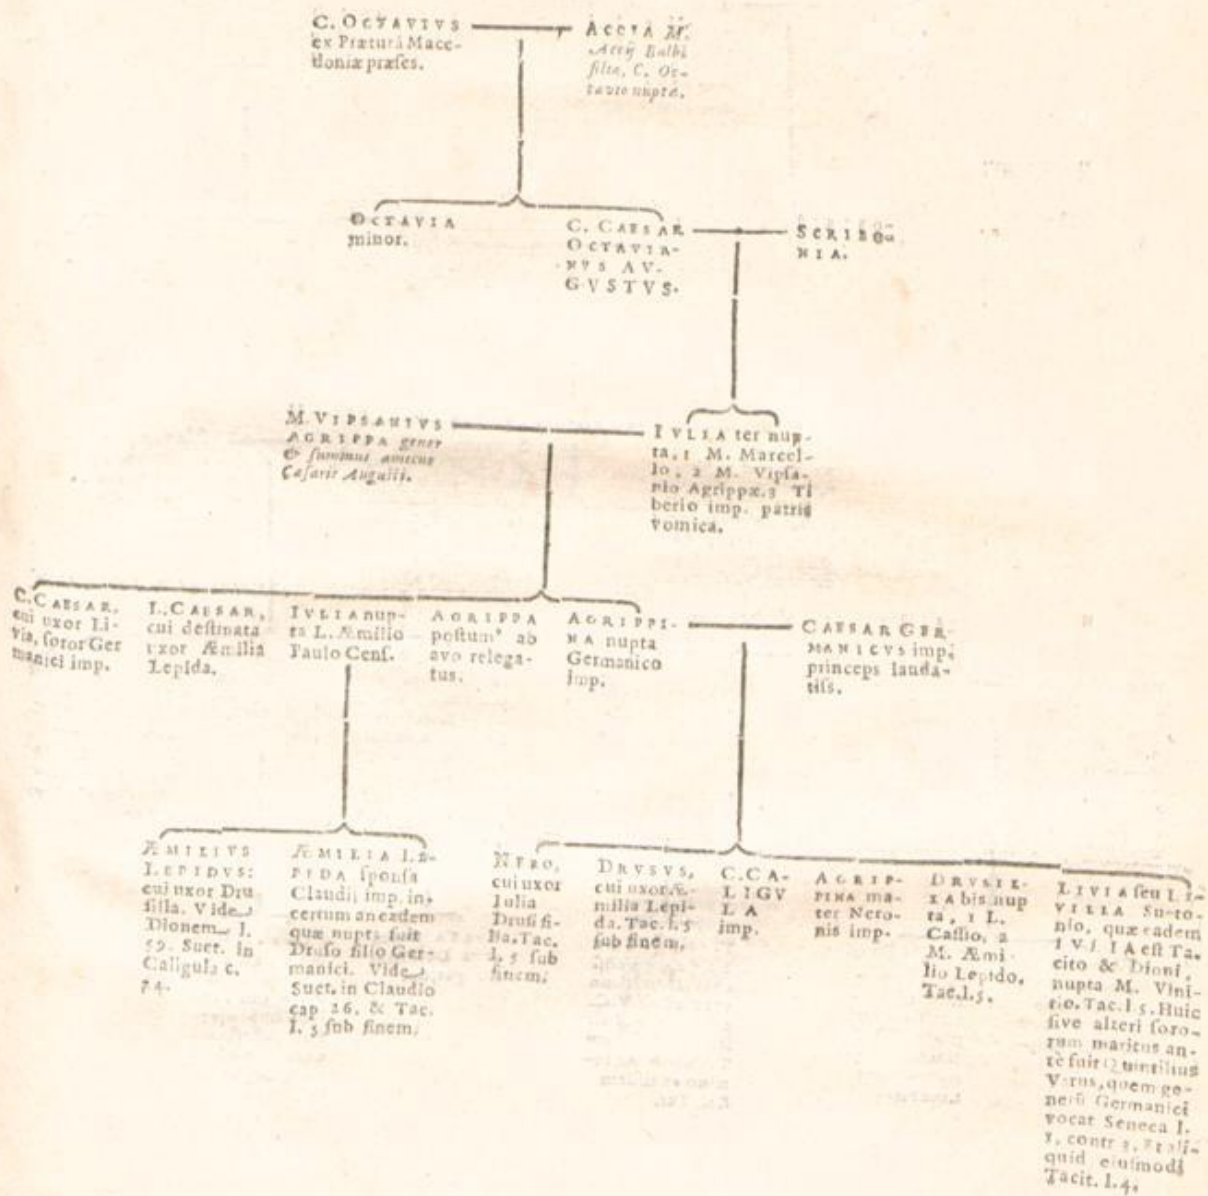 C. OCTAVIVS
ex Præturâ Mace-
doniæ præses.
ACCIA M.
Accij Balbi
filia, C. Oc-
tavio nupta.
OCTAVIA
minor.
C. CAESAR
OCTAVIA-
NVS AV-
GVSTVS.
SCRIBO-
NIA.
M. VIPSANIVS
AGRIPPA gener
& summus amicus
Cæsaris Augusti.
IVLIA ter nup-
ta, 1 M. Marcel-
lo, 2 M. Vipsa-
nio Agrippæ. 3 Ti
berio imp. patris
vomica.
C. CAESAR,
cui uxor Li-
via, soror Ger
manici imp.
L. CAESAR,
cui destinata
uxor Æmilia
Lepida.
IVLIA nup-
ta L. Æmilio
Paulo Cens.
AGRIPPA
postumꝰ ab
avo relega-
tus.
AGRIPPI-
NA nupta
Germanico
imp.
CAESAR GER-
MANICVS imp.
princeps lauda-
tiss.
ÆMILIVS
LEPIDVS:
cui uxor Dru
silla. Vide
Dionem l.
59. Suet. in
Caligula c.
ÆMILIA LE-
PIDA sponsa
Claudii imp. in-
certum an eadem
quæ nupta fuit
Druso filio Ger-
manici. Vide
Suet. in Claudio
cap 26. & Tac.
l. 5 sub finem.
NERO,
cui uxor
Iulia
Drusi fi-
lia. Tac.
l. 5 sub
finem.
DRVSVS,
cui uxor Æ-
milia Lepi-
da. Tac. l. 5
sub finem.
C. CA-
LIGV
LA
imp.
AGRIP-
PINA ma-
ter Nero-
nis imp.
DRVSIL-
LA bis nup
ta, 1 L.
Cassio, 2
M. Æmi
lio Lepido.
Tac. l. 5.
LIVIA seu LI-
VILLA Sueto-
nio, quæ eadem
IVLIA est Ta-
cito & Dioni,
nupta M. Vini-
cio. Tac. l 5. Huic
sive alteri soro-
rum maritus an-
tè fuit Quintilius
Varus, quem ge-
nerū Germanici
vocat Seneca l.
1, contr 3, Et ali-
quid eiusmodi
Tacit. l. 4.